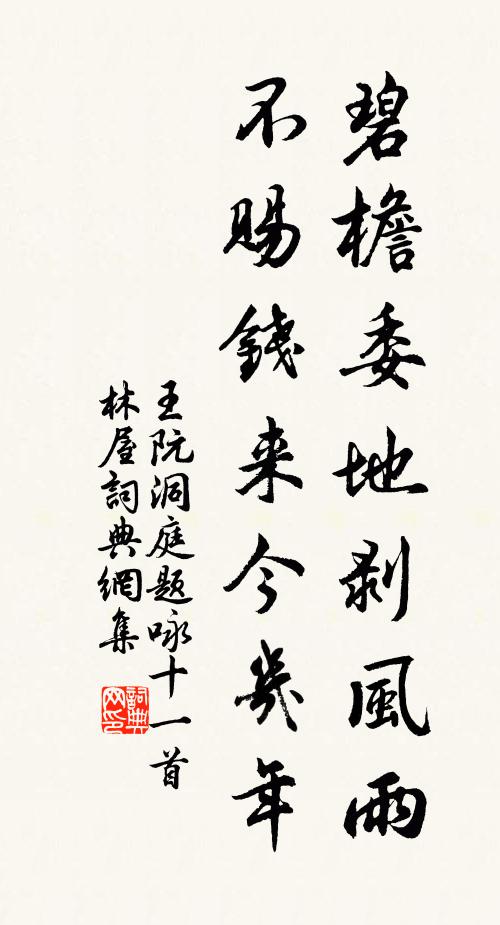 碧檐委地剥風雨
不賜錢来今幾年
王阮洞庭题咏十一首
林屋詞典網集
詞典网印